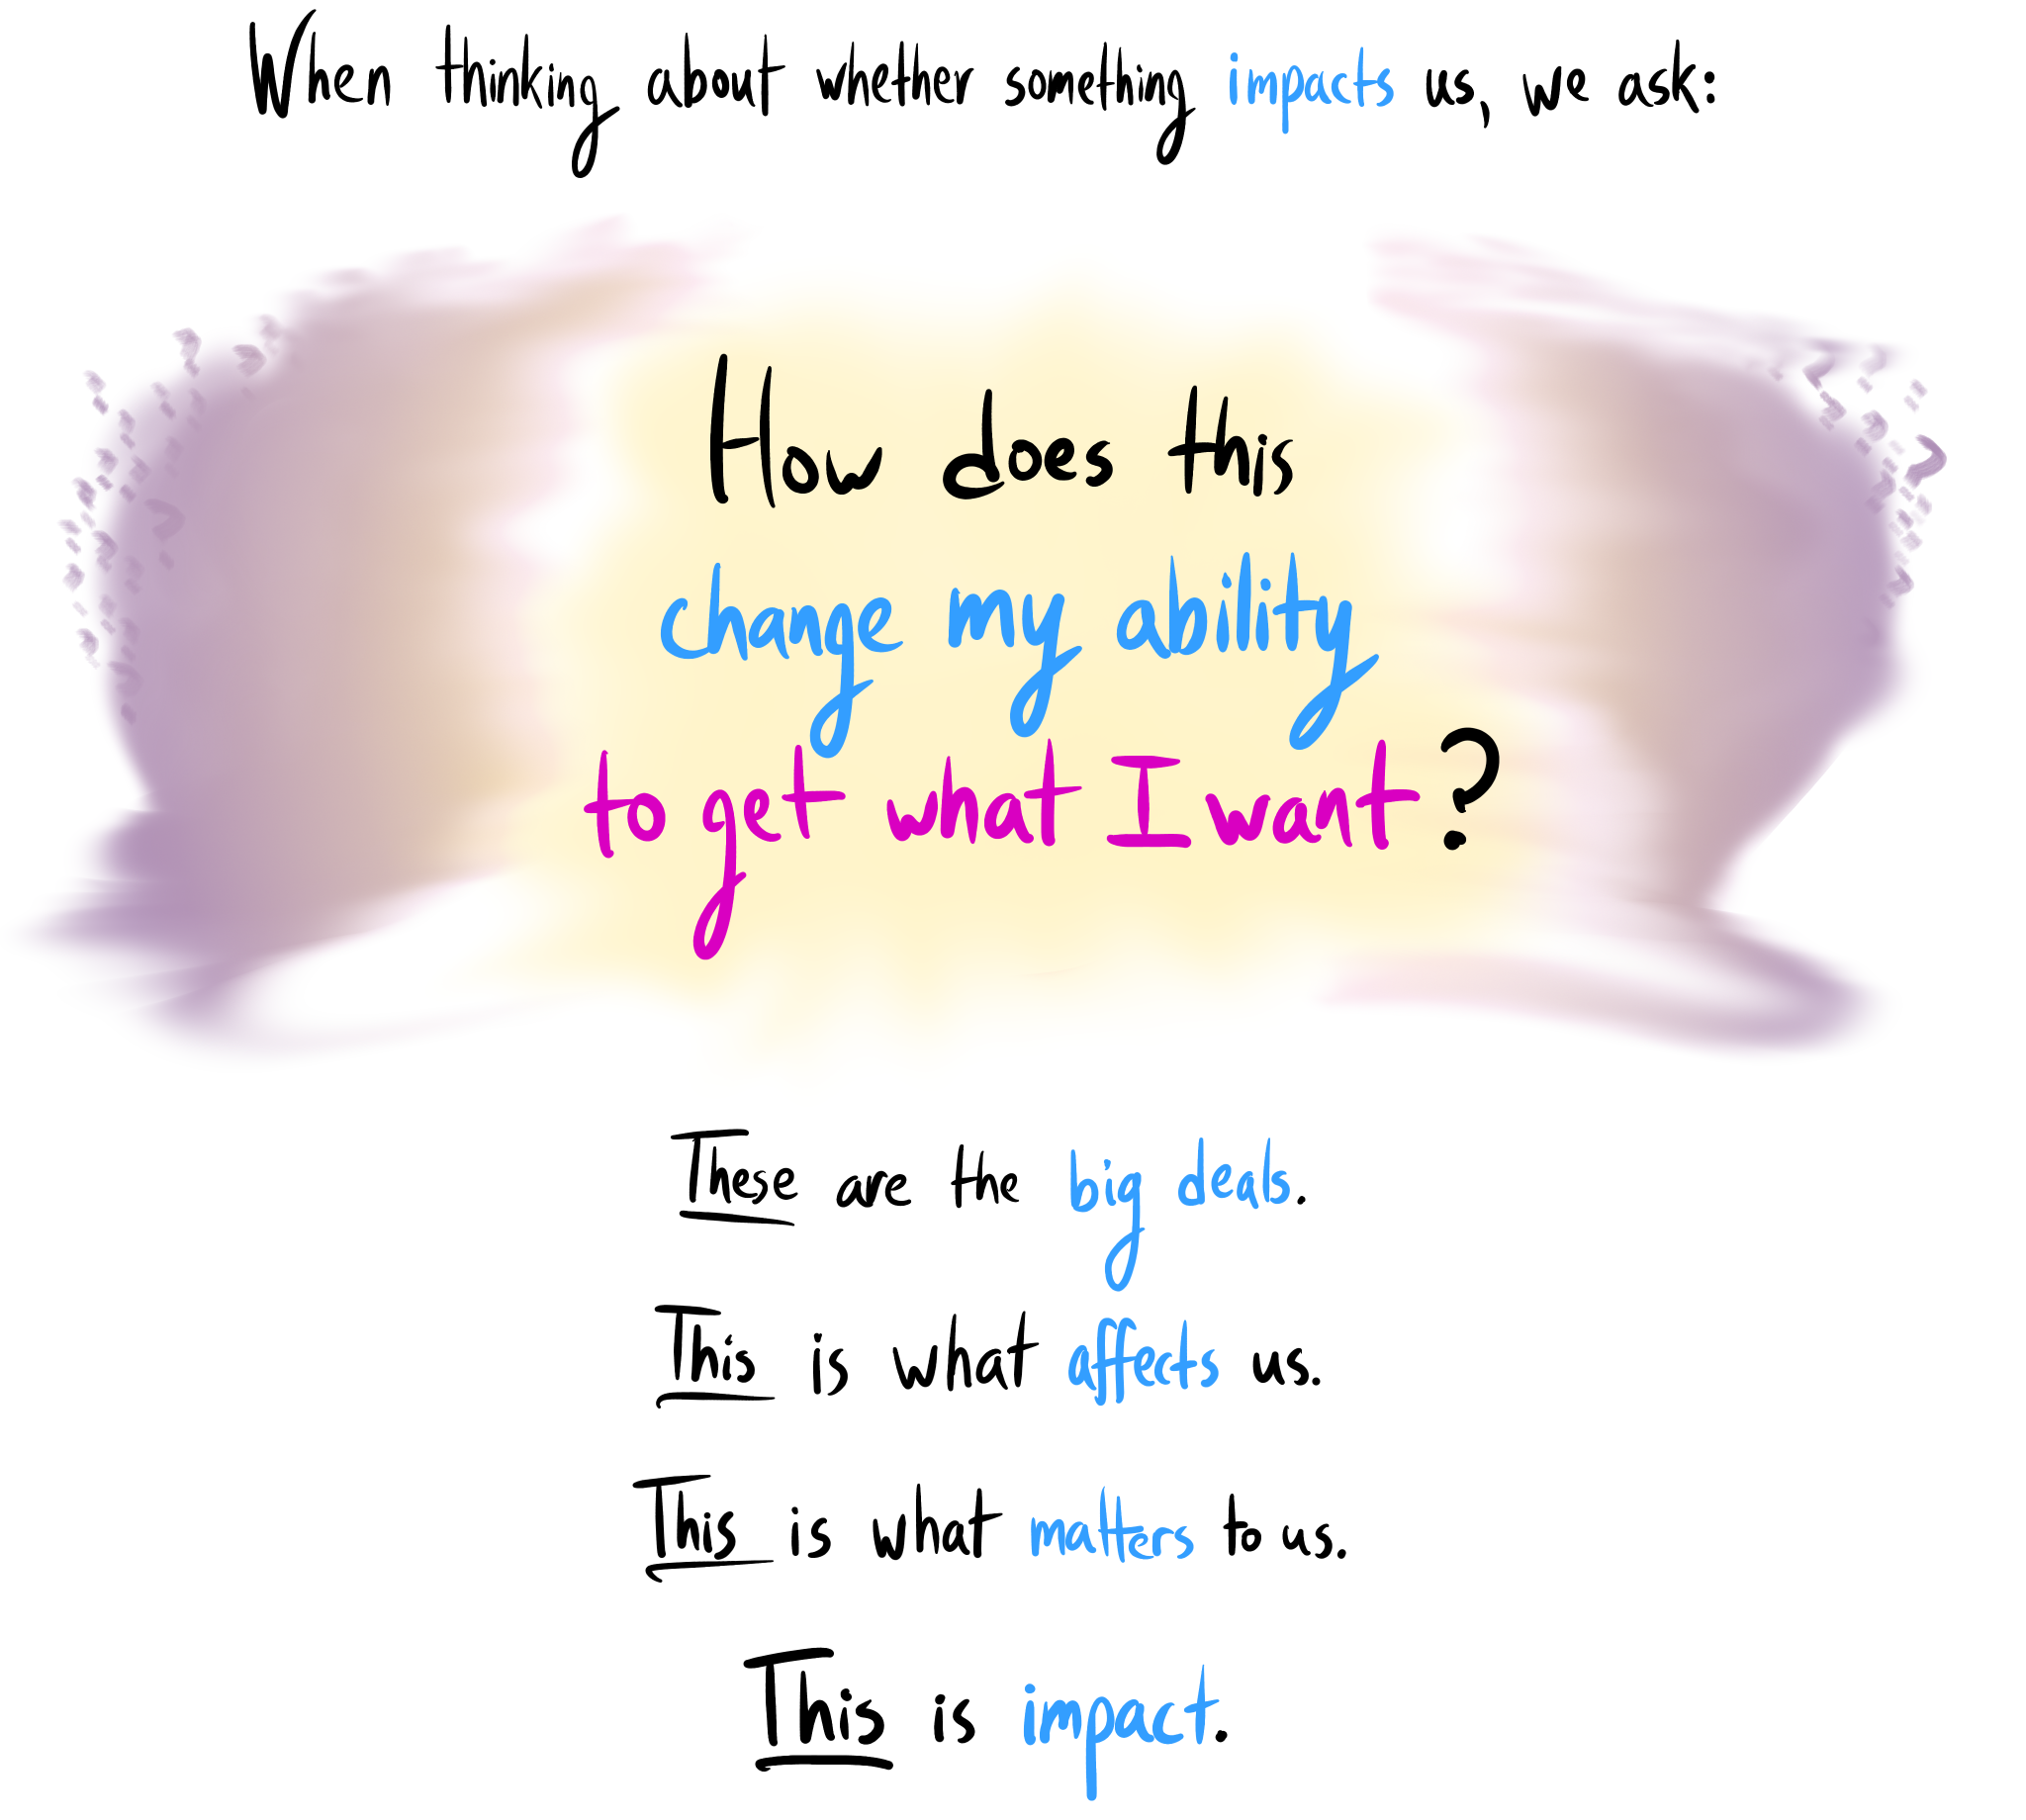 When thinking about whether something impacts us, we ask:
How does this
change my ability
to get what I want?
These are the big deals.
This is what affects us.
This is what matters to us.
This is impact.